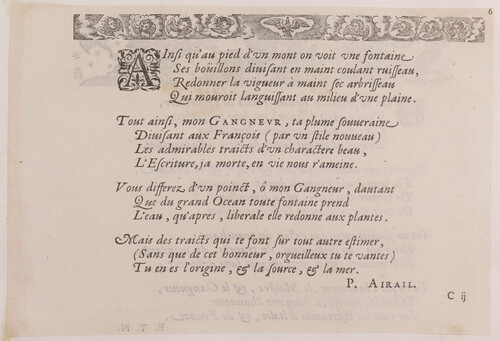 6
AInsi qu'au pied d'vn mont on voit vne fontaine
Ses boüillons diuisant en maint coulant ruisseau,
Redonner la vigueur à maint sec arbrisseau
Qui mouroit languissant au milieu d'vne plaine.
Tout ainsi, mon GANGNEVR, ta plume souueraine
Diuisant aux François (par vn stile nouueau)
Les admirables traicts d'vn charactere beau,
L'Escriture, ja morte, en vie nous r'ameine.
Vous differez d'vn poinct, ô mon Gangneur, dautant
Que du grand Ocean toute fontaine prend
L'eau, qu'apres, liberale elle redonne aux plantes.
Mais des traicts qui te font sur tout autre estimer,
(Sans que de cet honneur, orgueilleux tu te vantes)
Tu en es l'origine, & la source, & la mer.
P. AIRAIL.
C ij